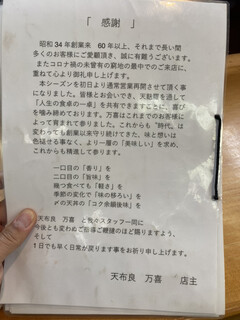 「 感謝 」
昭和34年創業来 60年以上、それまで長い間
多くのお客様にご愛顧頂き、誠に有難うございます。
またコロナ禍の未曾有の窮地の最中でのご来店に、
重ねて心より御礼申し上げます。
今シーズンを初日より通常営業再開させて頂く事
になりました。皆様とお会いでき、天麩羅を通して
「人生の食卓の一卓」を共有できますことに、喜び
を噛み締めております。万喜はこれまでのお客様に
よって育まれて参りました。これからも“時代”は
変わっても創業以来守り続けてきた、味と想いは
色褪せる事なく、より一層の「美味しい」を求め、
これからも精進して参ります。
一口目の「香り」を
二口目の「旨味」を
幾つ食べても「軽さ」を
季節の変化で「味の移ろい」を
〆の天丼の「コク余韻後味」を
天布良 万喜 と スタッフ一同に
今後とも変わらぬご指導ご鞭撻のほど賜りますよう、
そして
1日でも早く日常が戻ります事をお祈り申し上げます。
天布良 万喜 店主